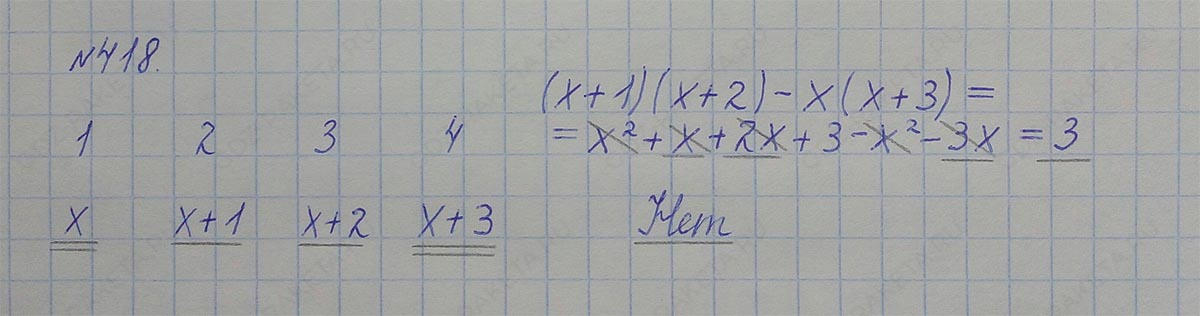 №418.
1 2 3 4
x x+1 x+2 x+3
(x+1)(x+2)-x(x+3)=
=x²+x+2x+3-x²-3x=3
Нет